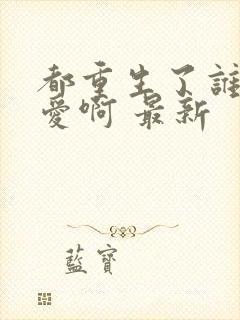 都重生了誰
愛啊 最新
藍寶